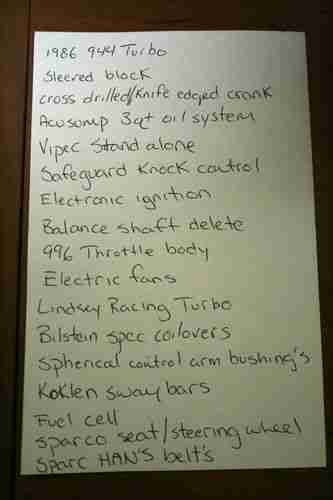 1986 944 Turbo
Sleeved block
cross drilled/Knife edged crank
Acusump 3qt oil system
Vipec Stand alone
Safeguard Knock control
Electronic ignition
Balance shaft delete
996 Throttle body
Electric fans
Lindsey Racing Turbo
Bilstein spec coilovers
Spherical control arm bushing's
Koklen sway bars
Fuel cell
Sparco seat/steering wheel
Sparc HAN'S belt's